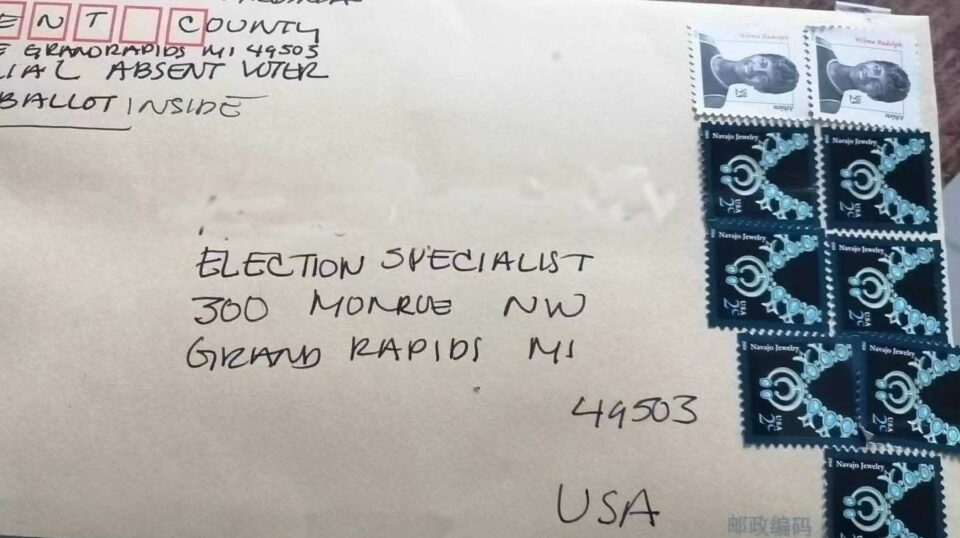 ENT COUNTY
E GRAND RAPIDS MI 49503
IAL ABSENT VOTER
BALLOT INSIDE
ELECTION SPECIALIST
300 MONROE NW
GRAND RAPIDS MI
49503
USA
Wilma Rudolph
23
USA
Athlete
Wilma Rudolph
23
USA
Athlete
Navajo Jewelry
USA
2c
Navajo Jewelry
USA
2c
Navajo Jewelry
USA
2c
Navajo Jewelry
USA
2c
Navajo Jewelry
USA
2c
Navajo Jewelry
USA
2c
Navajo Jewelry
USA
2c
邮政编码